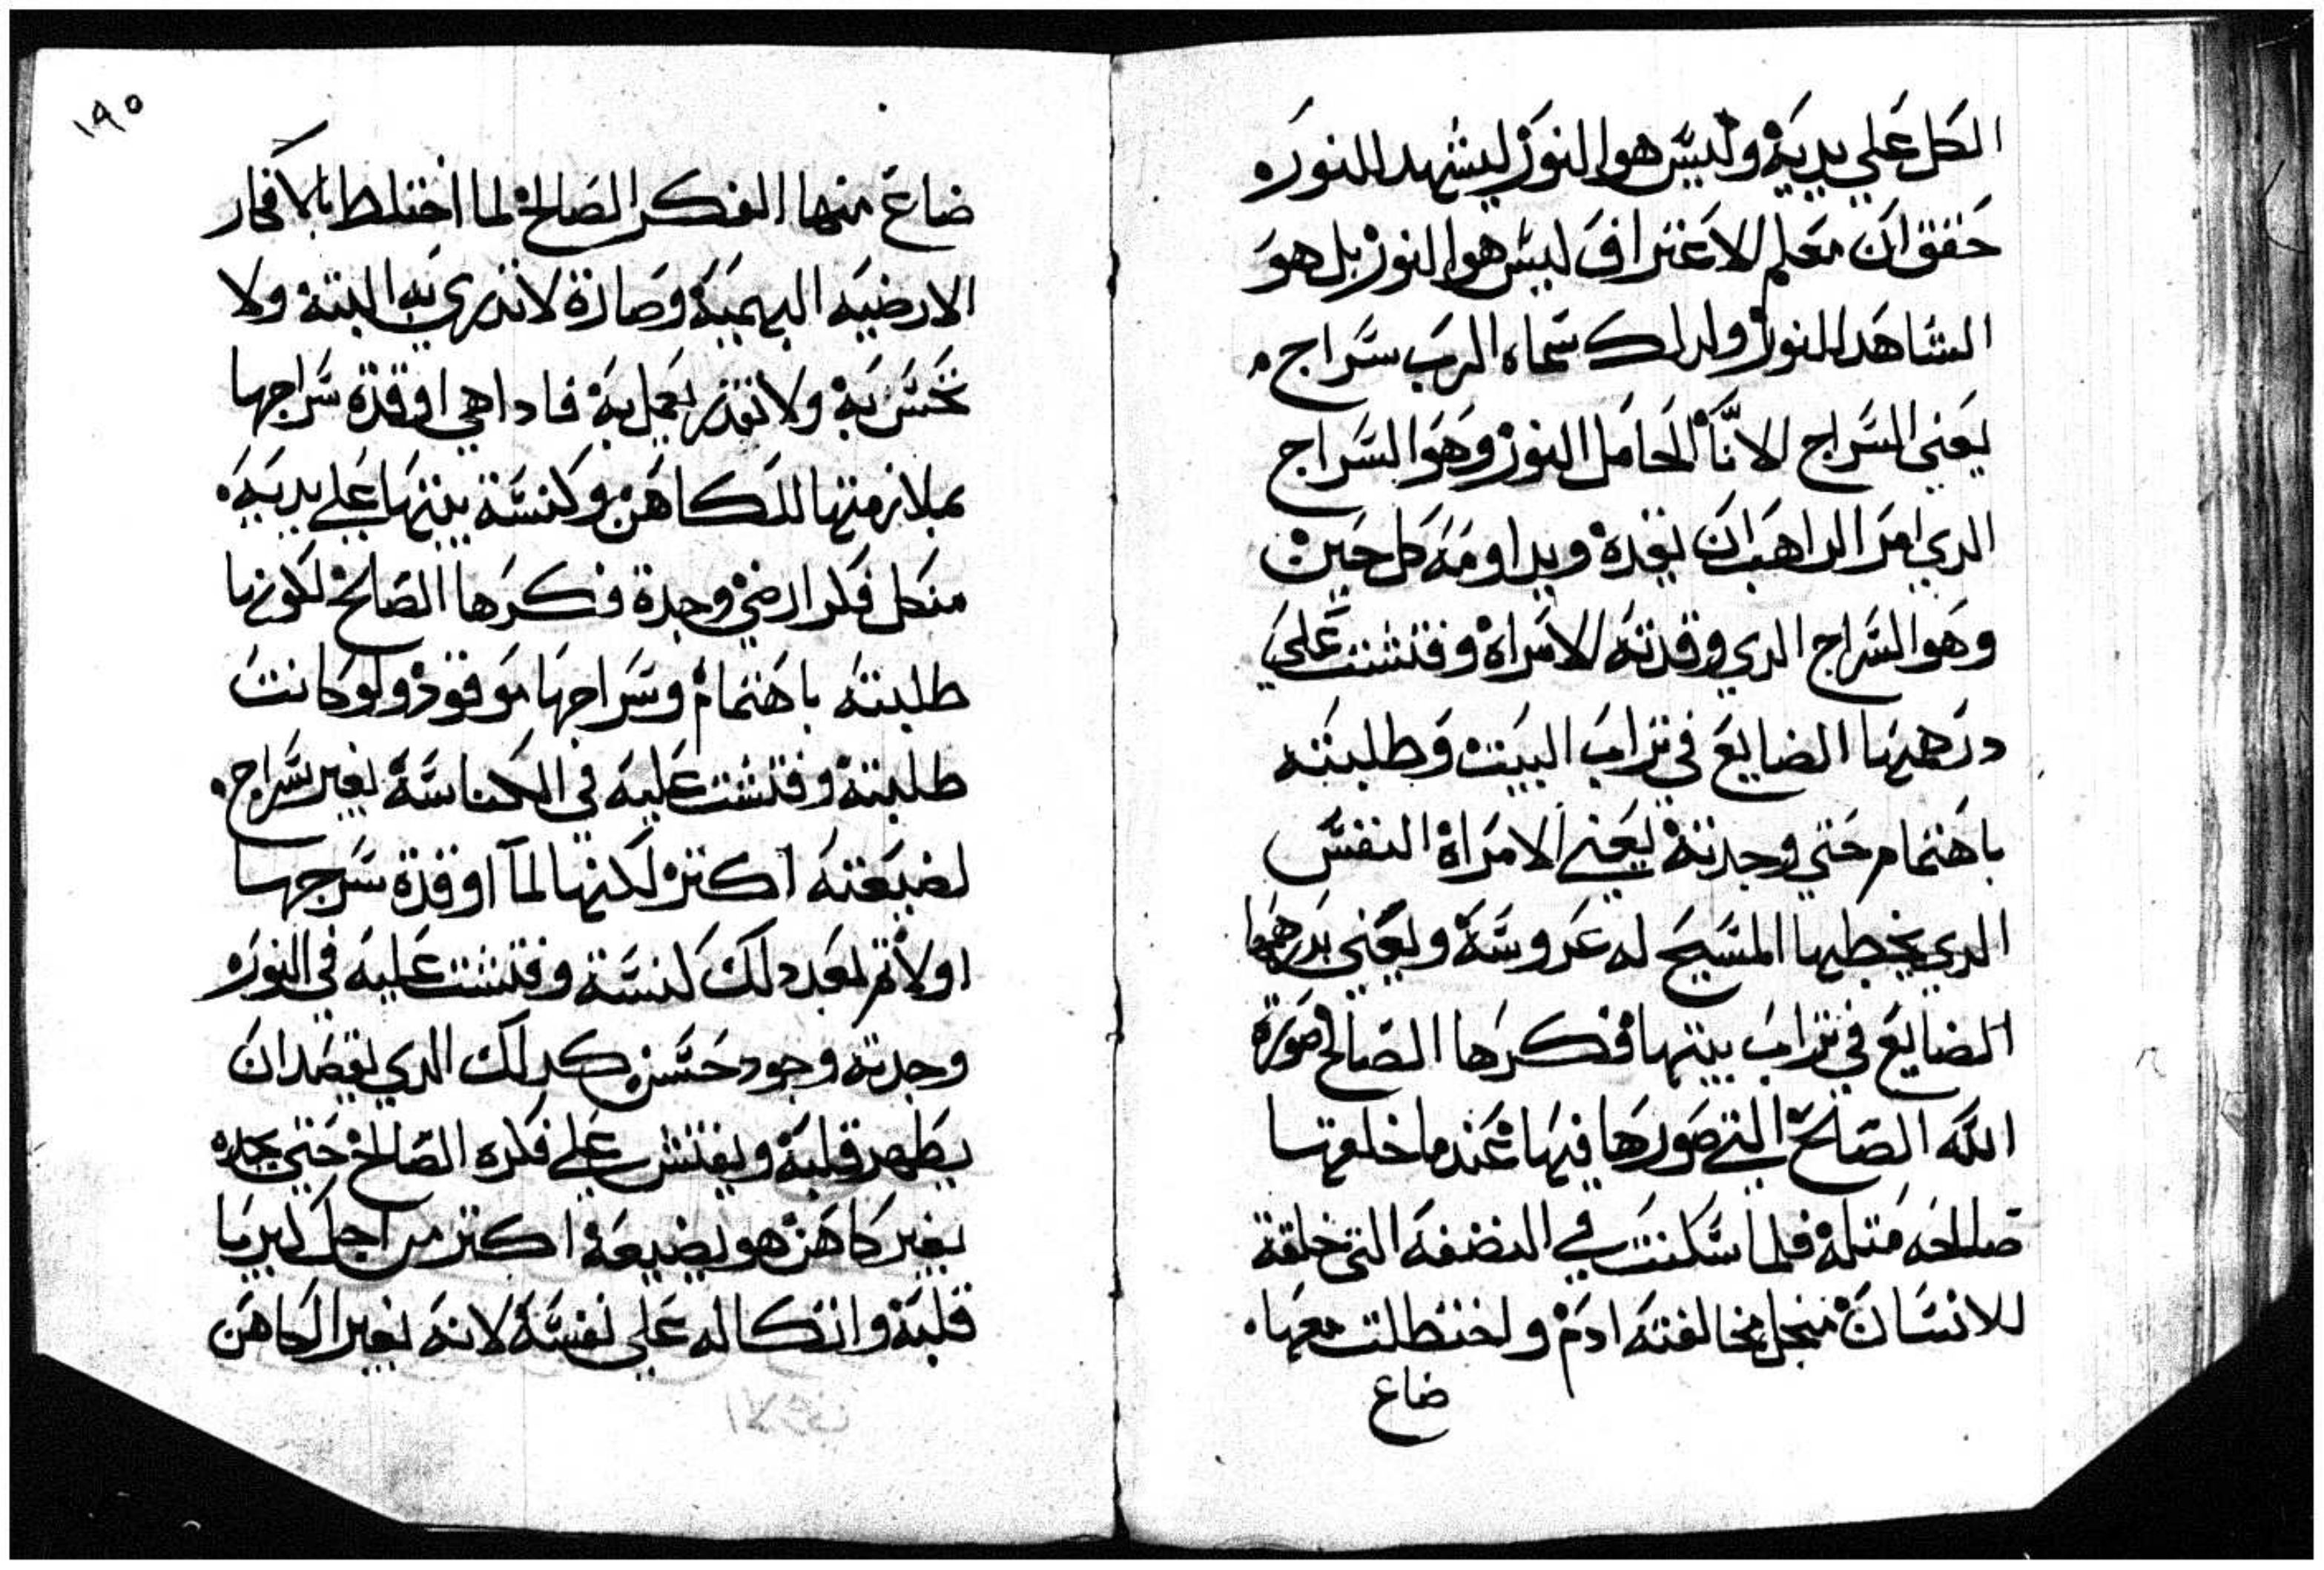 الكل علي يديه وليس هوا النور ليشهد للنوره
حقق ان معلم الاعتراف ليس هوا النور بل هو
الشاهد للنور ولدلك سماه الرب سراج.
يعني السراج الانا الحامل النور وهوا السراج
الدي امر الراهب ان يقده ويداومه كل حين
وهوا السراج الدي وقدته الامراة وفتشت علي
درهمها الضايع في تراب البيت وطلبته
باهتمام حتي وجدته يعني الامراة النفس
الدي يخطبها المسيح له عروسة ويعني بدرهمها
الضايع في تراب بيتها فكرها الصالح صورة
الله الصالح التي صورها فيها عندما خلقها
صالحه متله فلما سكنت في النضفه التي خلقة
للانسان منجل مخالفته ادم واختطلت معها.
ضاع
١٩٥
ضاع منها الفكر الصالح لما اختلط بالافكار
الارضيه البهيميه وصارة لا تدري به البتة ولا
تحس به ولا تقدر تعمل به فادا هي اوقدة سراجها
بملازمتها للكاهن وكنسة بيتها علي يديه.
منكل فكر ارضي وجدة فكرها الصالح لكونها
طلبته باهتمام وسراجها موقود ولو كانت
طلبته وفتشت عليه في الكناسة بغير سراج.
لضيعته اكتر لكنها لما اوقدة سرجها
اولا تم بعد دلك كنسة وفتشت عليه في النوره
وجدته وجود حسن كدلك الدي يقصد ان
يطهر قلبه ويفتش علي فكره الصالح حتي يجده
بغير كاهن هو يضيعه اكتر من اجل كبريا
قلبه واتكاله علي نفسه لانه بغير الكاهن